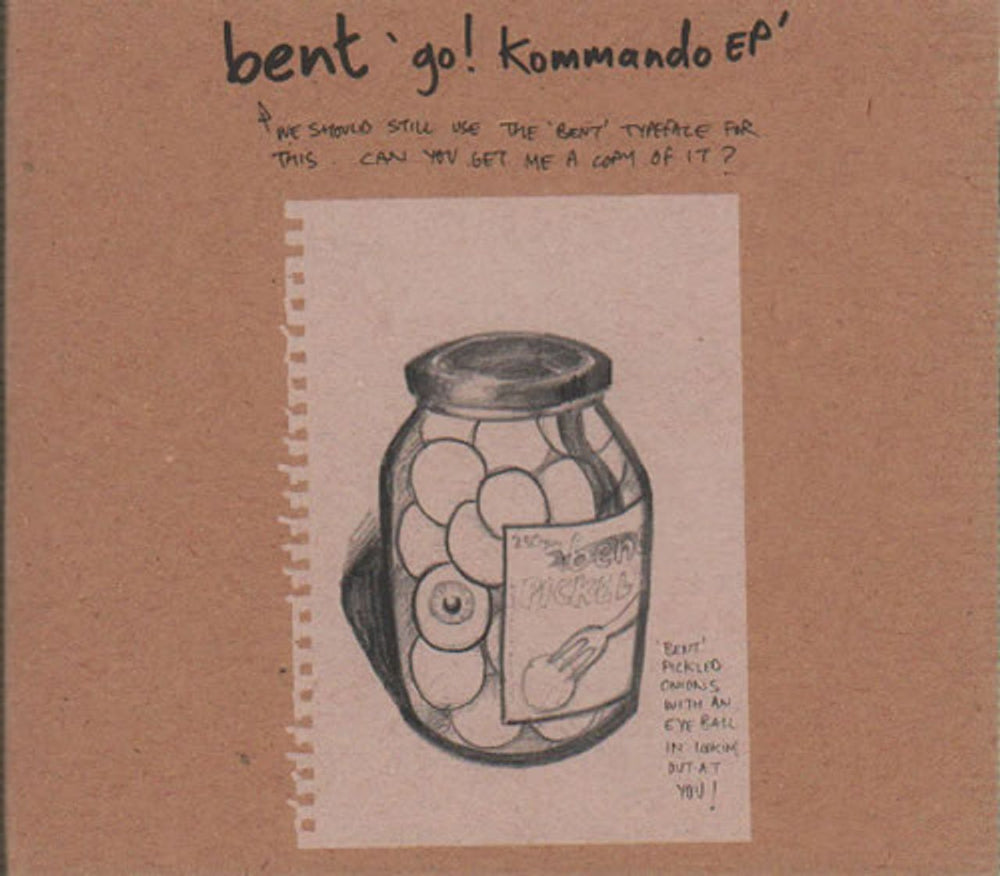 bent 'go! Kommando EP'
WE SHOULD STILL USE THE 'BENT' TYPEFACE FOR
THIS. CAN YOU GET ME A COPY OF IT?
ben
PICKL
'BENT'
PICKLED
ONIONS
WITH AN
EYE BALL
IN LOOKING
OUT AT
YOU!